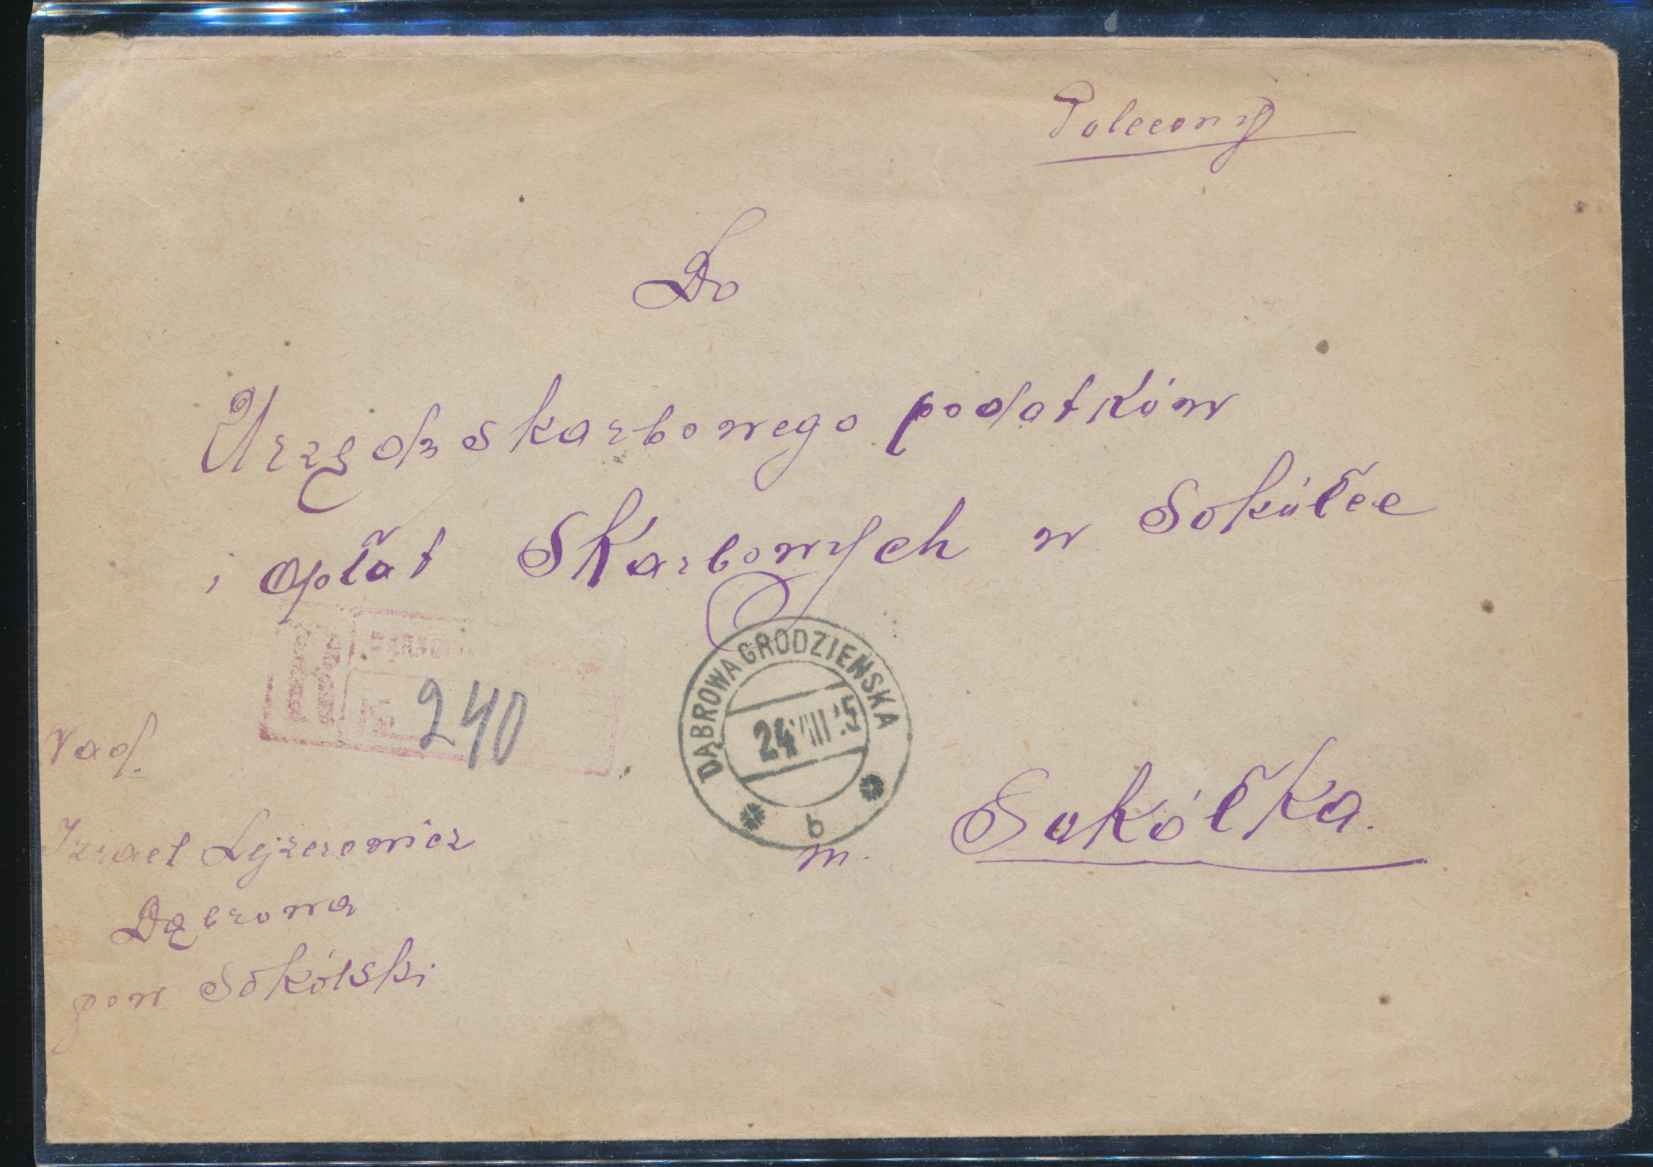 Polecony
Do
Urzędu skarbowego podatków
i opłat Skarbowych w Sokółce
240
DĄBROWA GRODZIEŃSKA
24 VIII 25
b
nad.
m. Sokółka.
Izrael Lejzerowicz
Dąbrowa
pow Sokólski